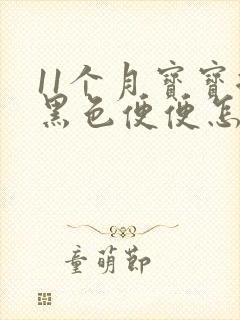 11个月寶寶
黑色便便怎
童萌節